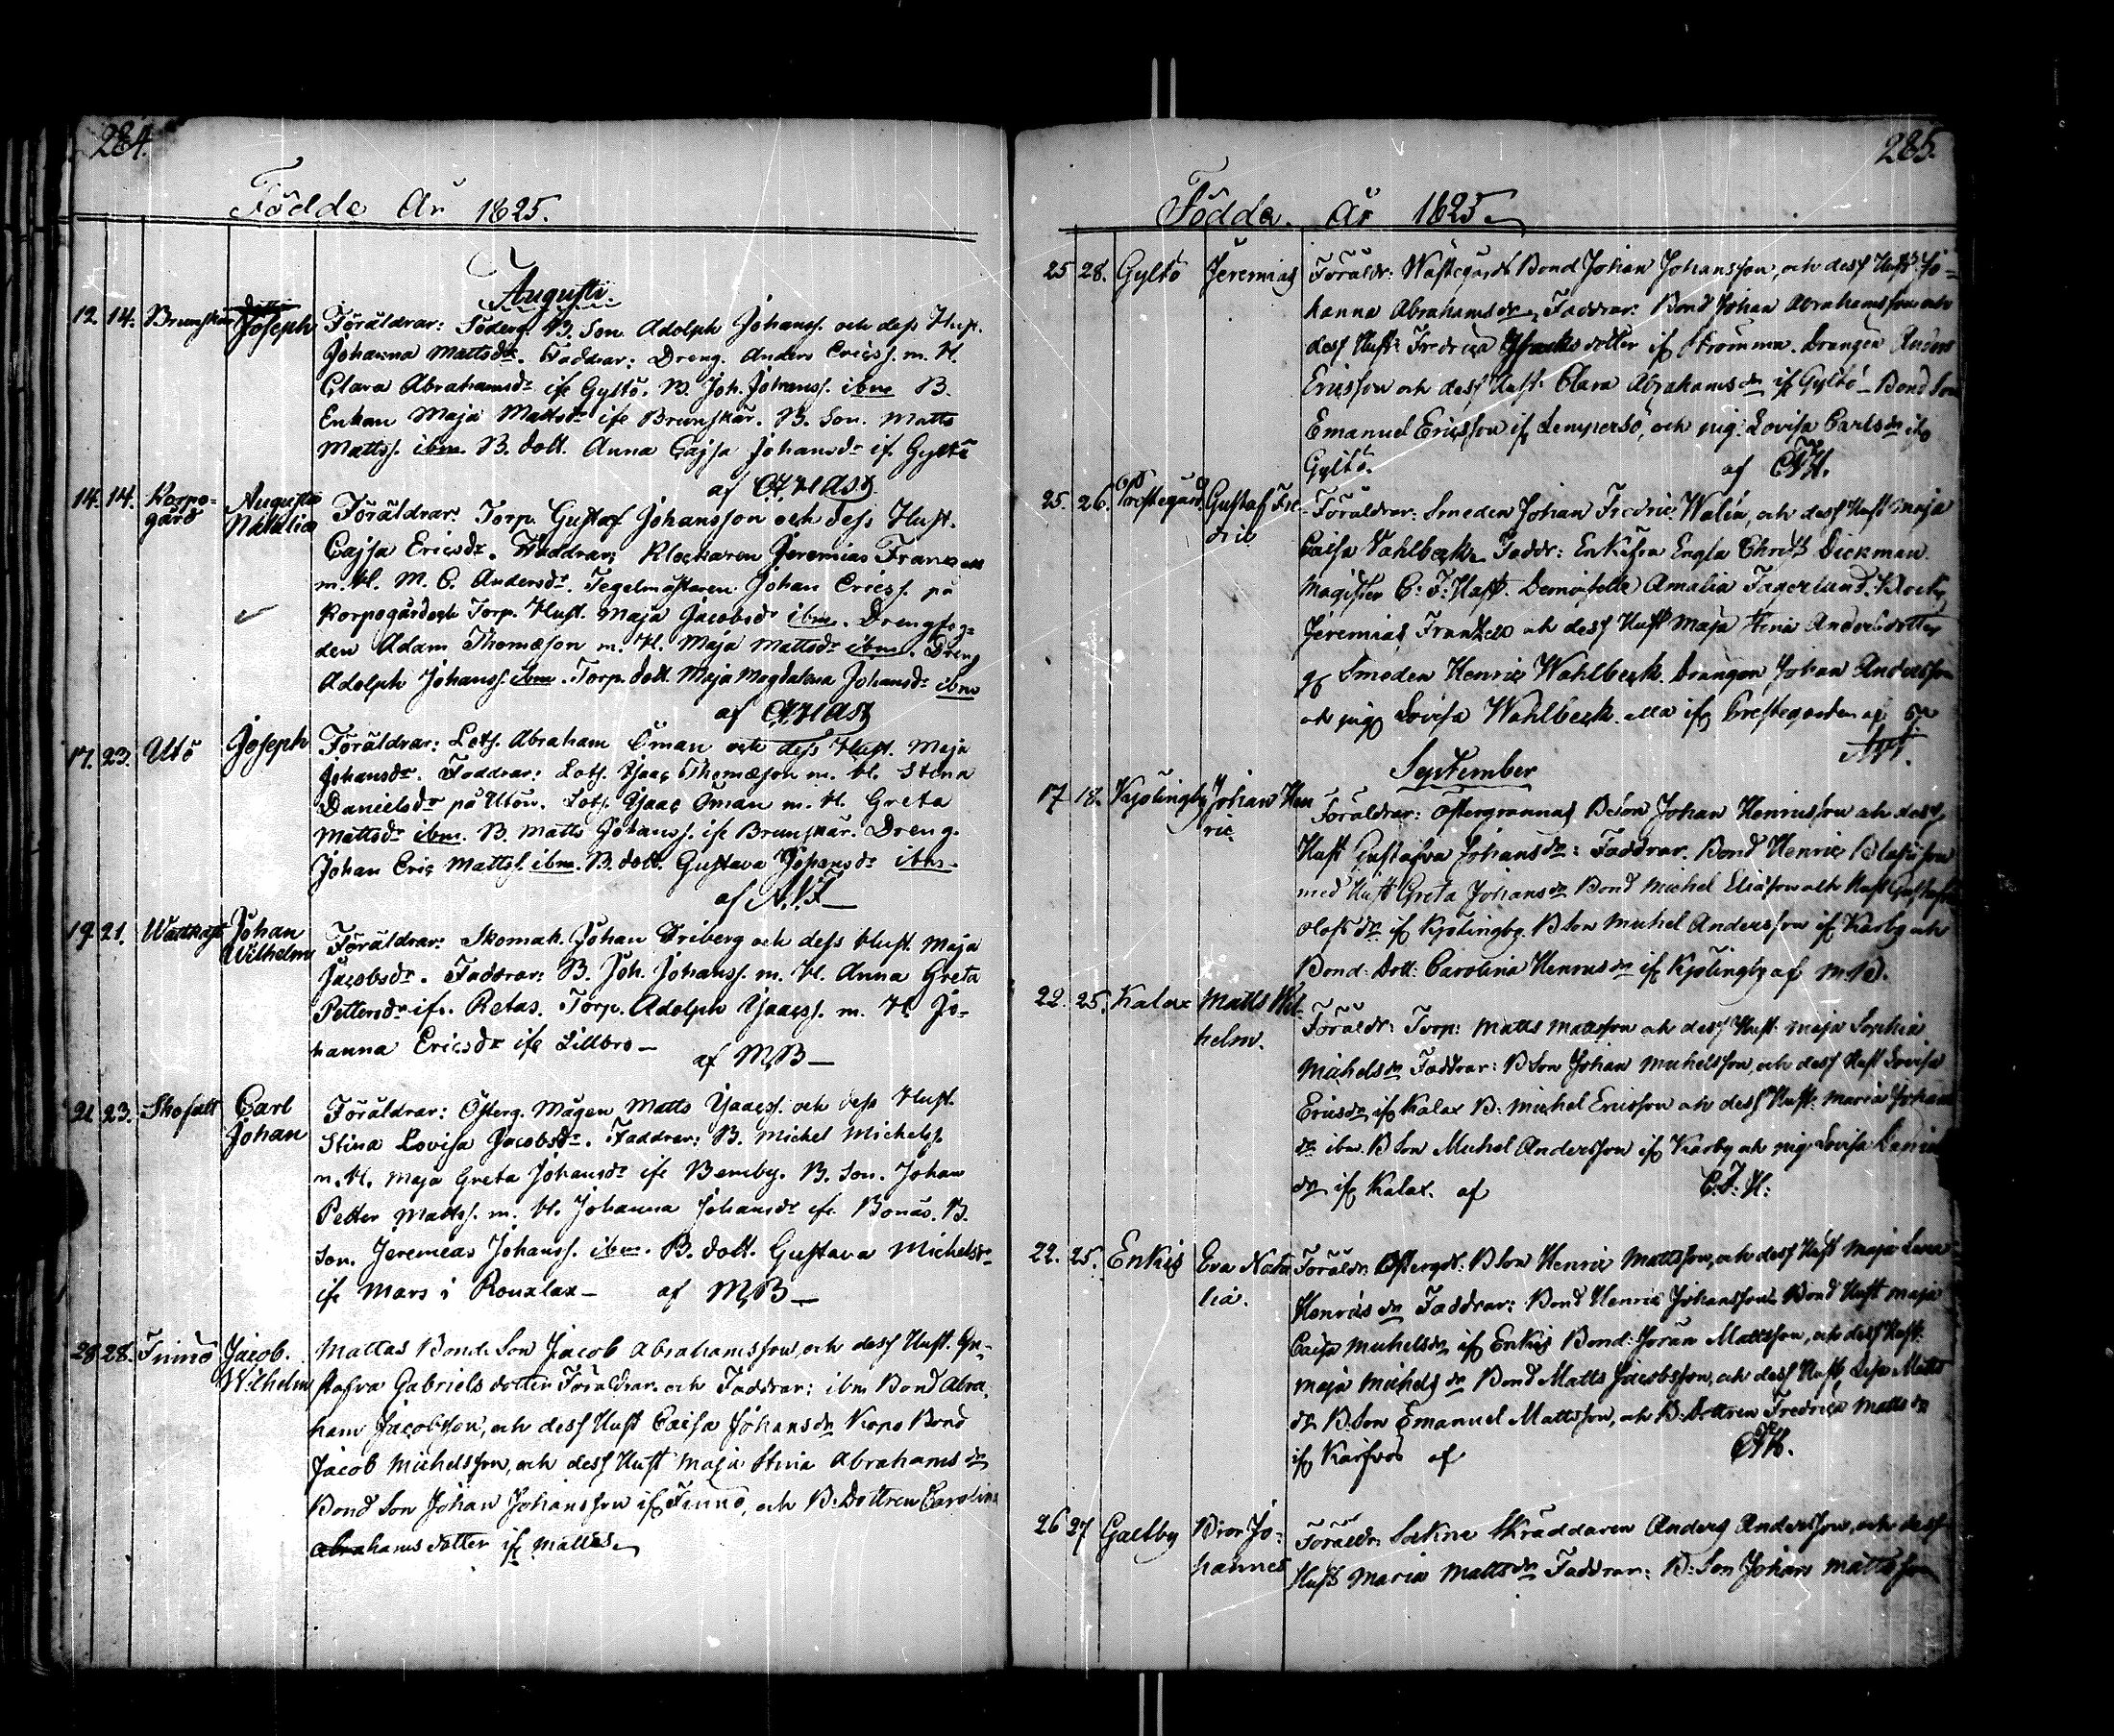 284.
Födde År 1825.
Augusti.
12. 14. Brunskär Joseph Föräldrar: Söderg. B. Son Adolph Johanss. och dess Hust.
Johanna Mattsdr. Faddrar: Dreng. Anders Ericss. m. H.
Clara Abrahamsdr ifr Gyltö. B. Joh. Johanss. ibm B.
Enkan Maja Mattsdr ifr Brunskär. B. Son. Matts
Mattss. ibm B. dott. Anna Cajsa Johansdr if. Gyltö
af
14. 14. Korpo- Augusta Föräldrar: Torp. Gustaf Johansson och dess Hust.
gård Natalia Cajsa Ericsdr. Faddrar: Klockaren Jeremias Franzell
m. H. M. C. Andersdr. Tegelmästaren Johan Ericss. på
Korpogård och Torp. Hust. Maja Jacobsdr ibm. Drengfog-
den Adam Thomæson m. H. Maja Mattsdr ibm. Dreng
Adolph Johanss. ibm. Torp. dott. Maja Magdalena Johansdr ibm
af
17. 23. Utö Joseph Föräldrar: Lots. Abraham Öman och dess Hust. Maja
Johansdr. Faddrar: Lots. Isaac Thomæson m. H. Stina
Danielsdr på Utön. Lots. Isaac Öman m. H. Greta
Mattsdr ibm. B. Matts Johanss. ifr Brunskär. Dreng.
Johan Eric Mattss. ibm. B. dott. Gustava Johansdr ibm-
af
19. 21. Johan Föräldrar: Skomak. Johan Friberg och dess Hust. Maja
Wilhelm Jacobsdr. Faddrar: B. Joh. Johanss. m. H. Anna Greta
Pettersdr ifr. Retas. Torp. Adolph Isaacss. m. H. Jo-
hanna Ericsdr ifr Lillbro-
af MB-
21. 23. Carl Föräldrar: Österg. Mågen Matts Isaacss. och dess Hust.
Johan Stina Lovisa Jacobsdr. Faddrar: B. Michel Michelss.
m. H. Maja Greta Johansdr ifr Bemby. B. Son. Johan
Petter Mattss. m. H. Johanna Johansdr ifr Bonäs. B.
Son. Jeremias Johanss. ibm. B. dott. Gustava Michelsdr
ifr Mars i Rouxlax- af MB-
28. 28. Finnö Jacob. Mattas Bonde Son Jacob Abrahamsson, och dess Hust. Gu-
Wilhelm stafva Gabriels dotter Föräldrar. och Faddrar: ibm Bond Abra-
ham Jacobsson, och dess Hust Caisa Johansdr Kopo Bond
Jacob Michelsson, och dess Hust Maja Stina Abrahamsdr
Bond Son Johan Johansson if Finnö, och B: Dottren Carolina
Abrahams dotter if Mattas
285.
Födda. År 1825.
25 28. Gyltö Jeremias Föräldr: Wästegårds Bond Johan Johansson, och dess Hust: Jo-
hanna Abrahamsdr, Faddrar: Bond Johan Abrahamsson och
dess Hust: Fredrica dotter if Strömma. Drängen Anders
Ericsson och dess Hust: Clara Abrahamsdr if Gyltö - Bond Son
Emanuel Ericsson if Lempersö, och pig: Lovisa Carlsdr ifr
Gyltö. af CFH.
25. 26. Prestegård Gustaf Fre- Föräldrar: Smeden Johan Fredric Walin, och dess Hust Maja
dric Caisa Vahlbeck. Faddr: Enkefru Engla Christ Dickman.
Magister C: F: Hast. Demoiselle Amalia Fagerlund. Klock:
Jeremias Frantzell och dess Hust Maja Stina Andersdotter
Smeden Henric Wahlbeck. Drängen Johan Andersson
och pig Lovisa Wahlbeck. alla if Prestegården af
September
17 18. Kyölingby Johan Hen Föräldrar: Östergrannas B Son Johan Henricsson och dess
ric Hust Gustafva Johansdr: Faddrar. Bond Henric Blasisson
med Hust Greta Johansdr Bond Michel Eliasson och Hust Gustafva
Olofsdr if Kyölingby. B Son Michel Andersson if Karby och
Bond: Dott: Carolina Henricsdr if Kyölingby af M.B.
22. 25. Kalax Matts Wil- Föräldr: Torp: Matts Mattsson och dess Hust: Maja Sophia
helm. Michelsdr Faddrar: B Son Johan Michelsson, och dess Hust Lovisa
Ericsdr if Kalax B: Michel Ericsson och dess Hust: Maria Johans
dr ibm. B Son Michel Andersson if Karby och pig Lovisa Daniels
dr if Kalax. af C. F: H:
22. 25. Enkis Eva Nata Föräldr: Östergds: B Son Henric Mattsson, och dess Hust Maja Lena
lia. Henricsdr Faddrar: Bond Henric Johansson Bond Hust Maja
Caisa Michelsdr if Enkis Bond: Jöran Mattsson, och dess Hust
Maja Michelsdr Bond Matts Jacobsson, och dess Hust Lisa Matts
dr B: Son Emanuel Mattsson, och B: Dottren Fredrica Mattsdr
if Kärfvas af CFH.
26 27 Galtby Bror Jo- Föräldr: Sokne Skräddaren Anders Andersson, och dess
hannes Hust Maria Mattsdr Faddrar: B: Son Johan Mattsson